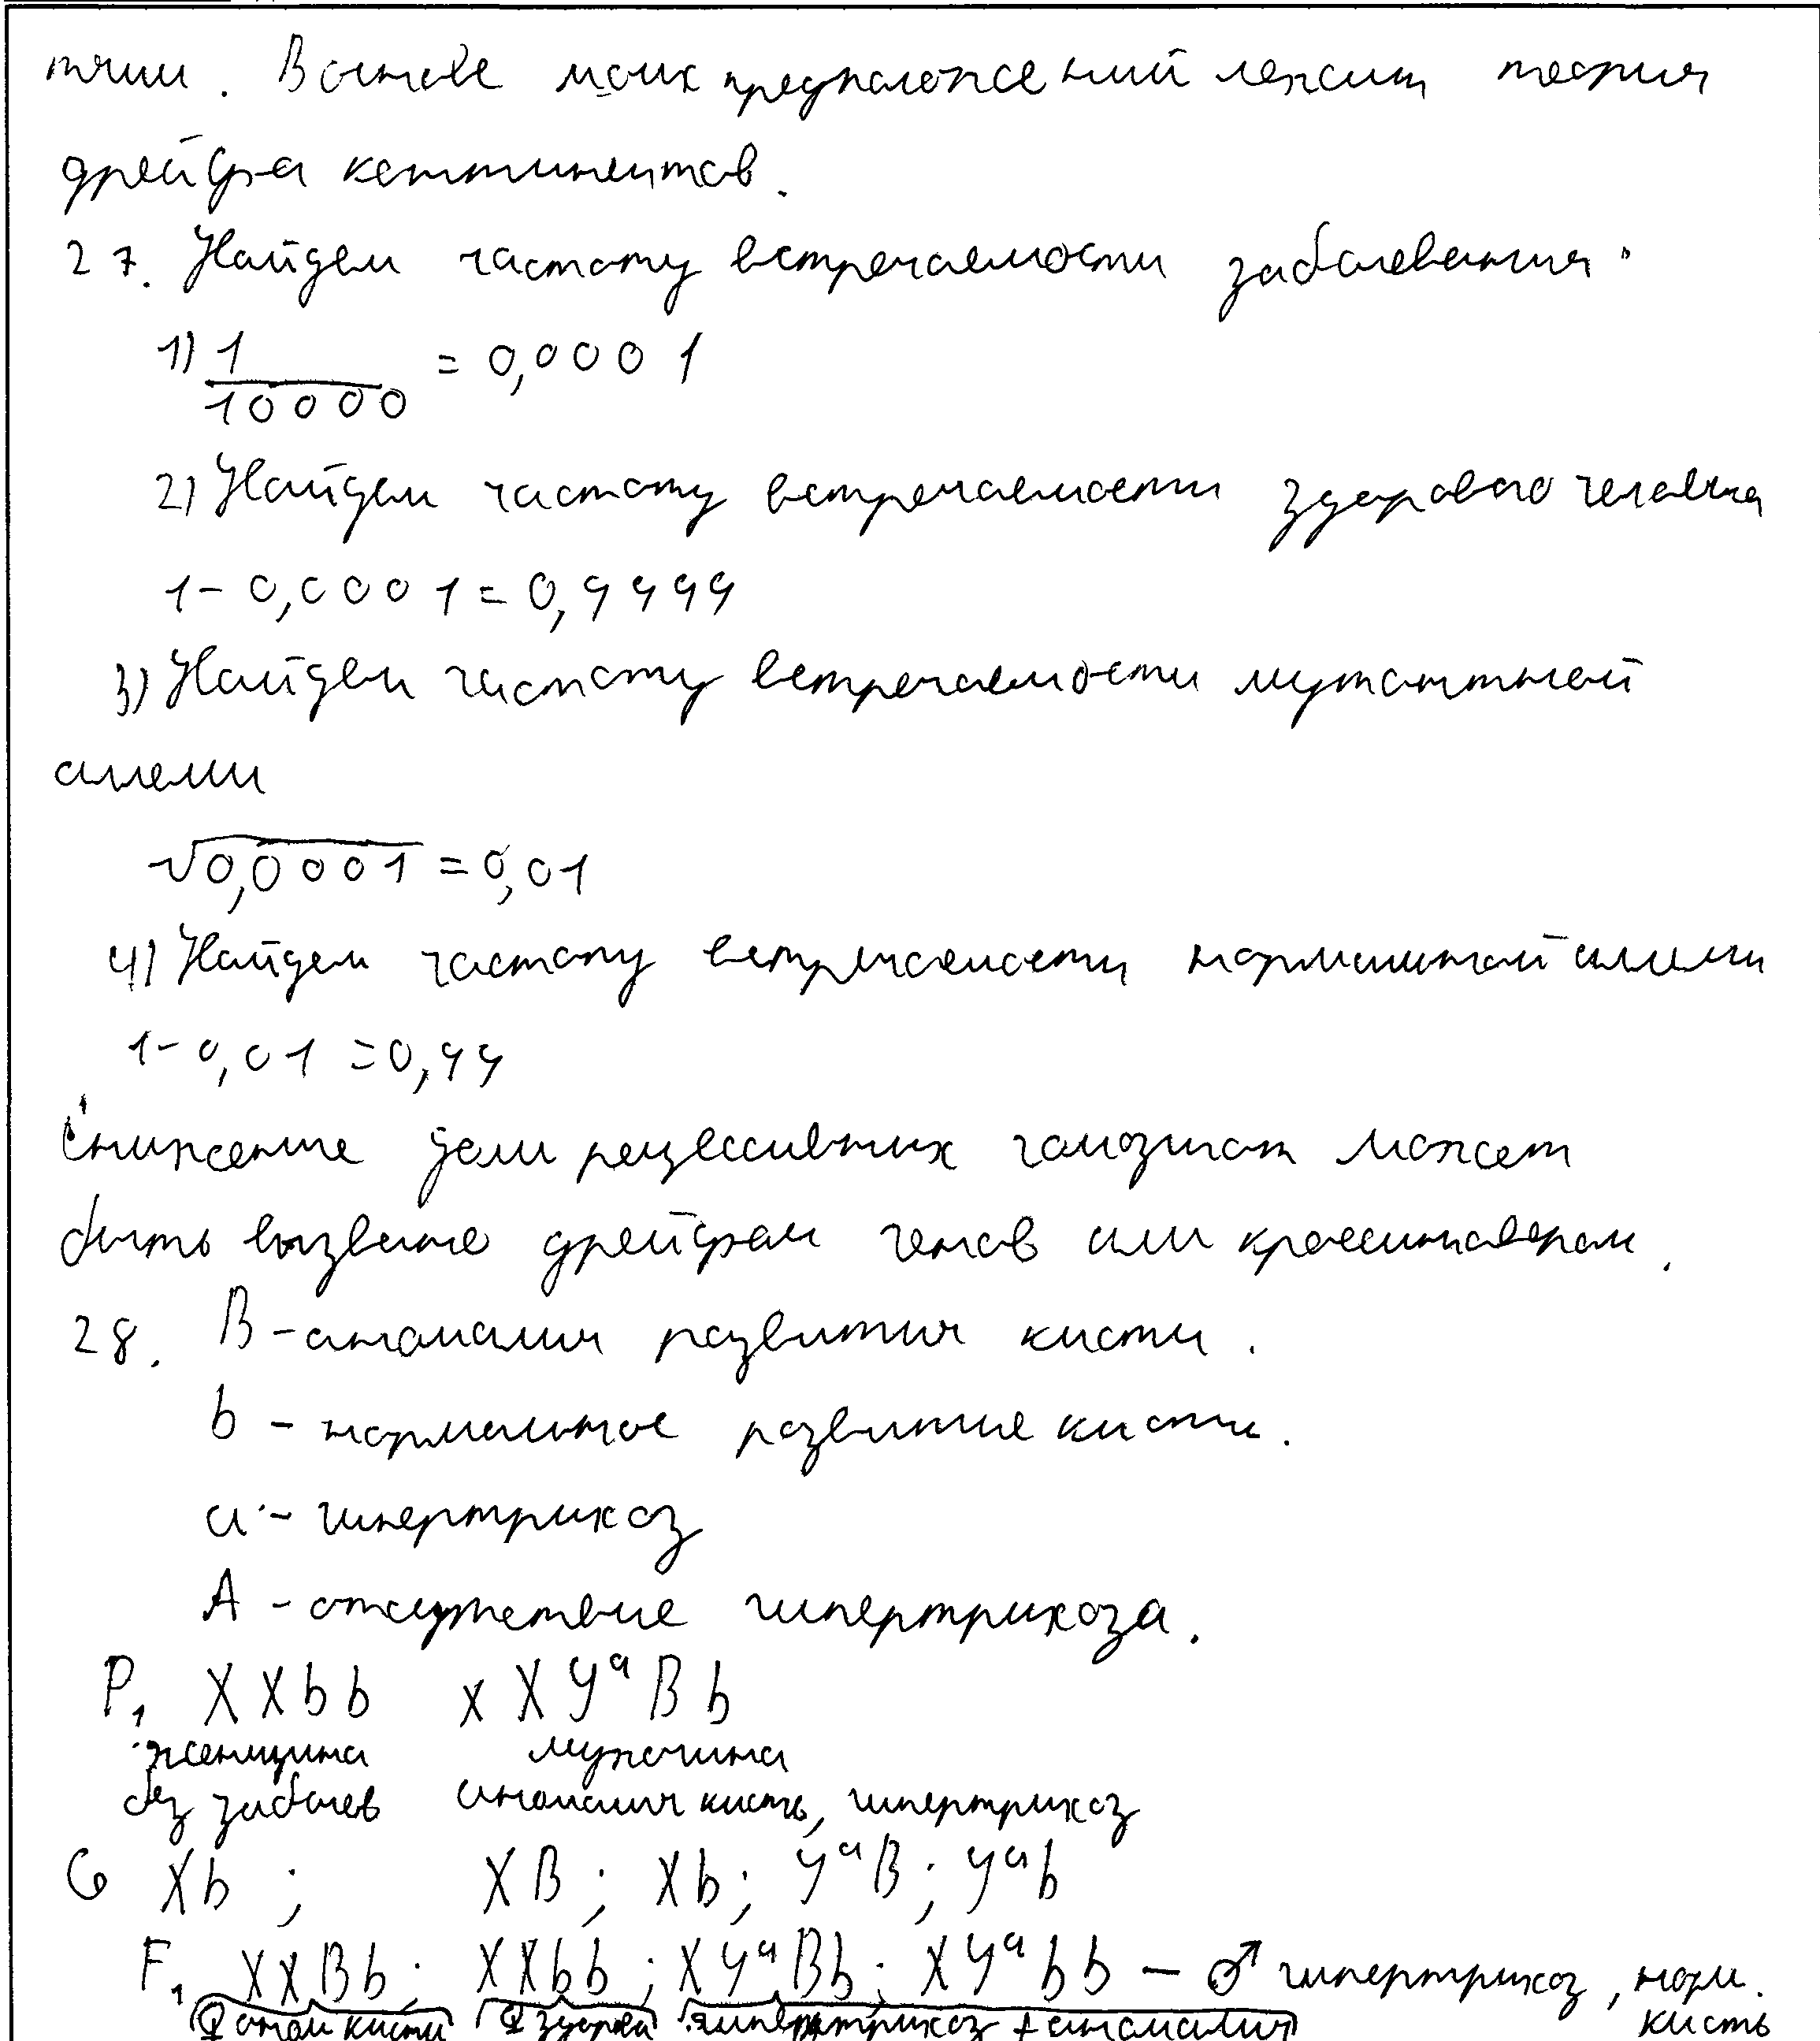 тяии. В основе моих предположений лежит теория
дрейфа континентов.
27. Найдем частоту встречаемости заболевания:
1) 1/10000 = 0,0001
2) Найдем частоту встречаемости здорового человека
1 - 0,0001 = 0,9999
3) Найдем частоту встречаемости мутантной
алели
√0,0001 = 0,01
4) Найдем частоту встречаемости нормальной алели
1 - 0,01 = 0,99
Снижение доли рецессивных гомозигот может
быть вызвано дрейфом генов или кроссинговером.
28. B - аномалия развития кисти.
b - нормальное развитие кисти.
a - гипертрихоз
A - отсутствие гипертрихоза.
P₁ XXbb x XYᵃBb
женщина мужчина
без заболев аномалия кисть, гипертрихоз
G Xb ; XB ; Xb ; YᵃB ; Yᵃb
F₁ XXBb ; XXbb ; XYᵃBb ; XYᵃbb - ♂ гипертрихоз, норм.
♀ аном кисти ♀ здоров гипертрихоз + аномалия кисть